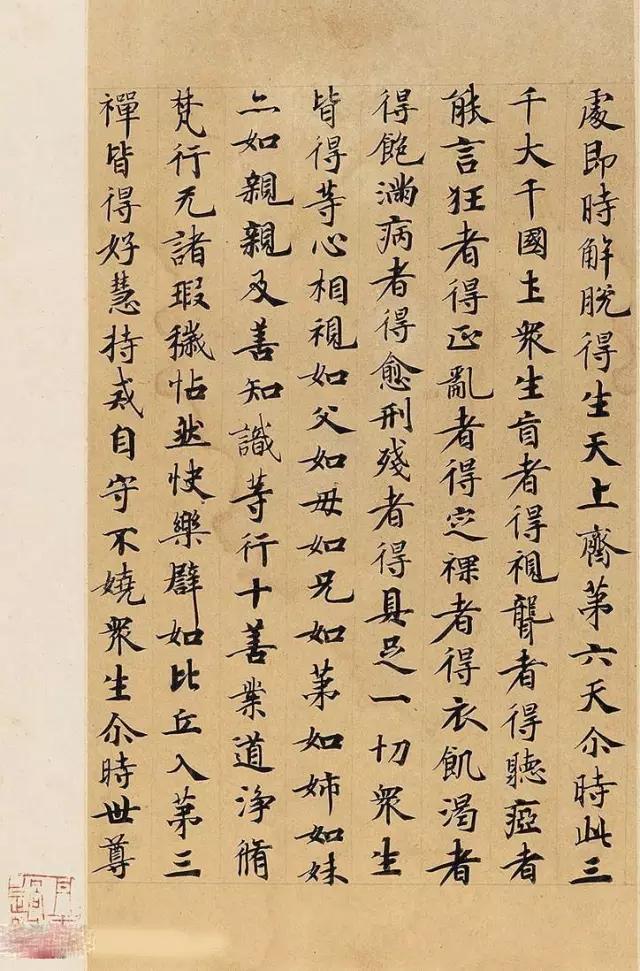 處即時解脫得生天上齊第六天尒時此三
千大千國土衆生盲者得視聾者得聽瘂者
能言狂者得正亂者得定裸者得衣飢渴者
得飽滿病者得愈刑殘者得具足一切衆生
皆得等心相視如父如母如兄如苐如姉如妹
亦如親親及善知識等行十善業道淨脩
梵行无諸瑕穢怗然快樂譬如比丘入第三
禪皆得好慧持戒自守不嬈衆生尒時世尊